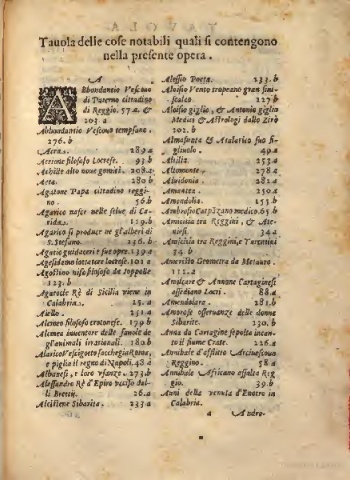 Tauola delle cose notabili quali si contengono
nella presente opera.
A
Abondantio Vescono
di Paterno cittadino
di Reggio. 57.a. &
203.a
Abbundantio Vescouo tempsano.
276.b
Acra. 289.a
Acrione filosofo Locrese. 93.b
Achille alto noue gomiti. 208.a
Acta. 280.b
Agatone Papa cittadino reggi-
no. 56.b
Agarico nasce nelle selue di Ca-
rida. 119.b
Agarico si produce ne gl'alberi di
S. Stefano. 236.b
Agutie guidaceri e sue opre. 139.a
Agesidemo lottatore locrese. 101.a
Agostino nifo filosofo da Ioppolo
123.b
Agatocle Rè di Sicilia viene in
Calabria. 25.a
Aiello. 251.a
Alcmeo filosofo crotonese. 179.b
Alcmeo inuentore delle fauole de
gl'animali irrationali. 180.b
Alarico Vesigotto saccheggia Roma,
e piglia il regno di Napoli. 48.a
Albanesi, e loro vsanze. 273.b
Alessandro Rè d'Epiro vcciso dal-
li Brettij. 26.a
Alcistene Sibarita. 233.a
Alessio Poeta. 233.b
Alessio Vento tropeano gran sini-
scalco. 127.b
Aloisio giglio, & Antonio giglio
Medici & Astrologi dallo Zirò
202.b
Almasunta & Atalarico suo fi-
gliuolo. 49.a
Altilia. 253.a
Altomonte. 278.a
Aluidonia. 281.a
Amantea. 250.a
Amendolia. 153.b
Ambrosio Carpazano medico. 65.b
Amicitia tra Reggini, & Ate-
niesi. 34.a
Amicitia tra Reggini, e Tarentini
34.b
Ameristo Geometra da Metauro.
111.a
Amilcare & Annone Cartaginesi
assediano Locri. 88.a
Amendolara. 281.b
Amorose osseruanze delle donne
Sibarite. 220.b
Anna da Cartagine sepolta incan-
to il fiume Crate. 226.a
Annibale d'afflitto Arciuescouo
Reggino. 58.a
Annibale Africano assalta Reg
gio. 39.b
Anni della venuta d'Enotro in
Calabria.
a Andro-